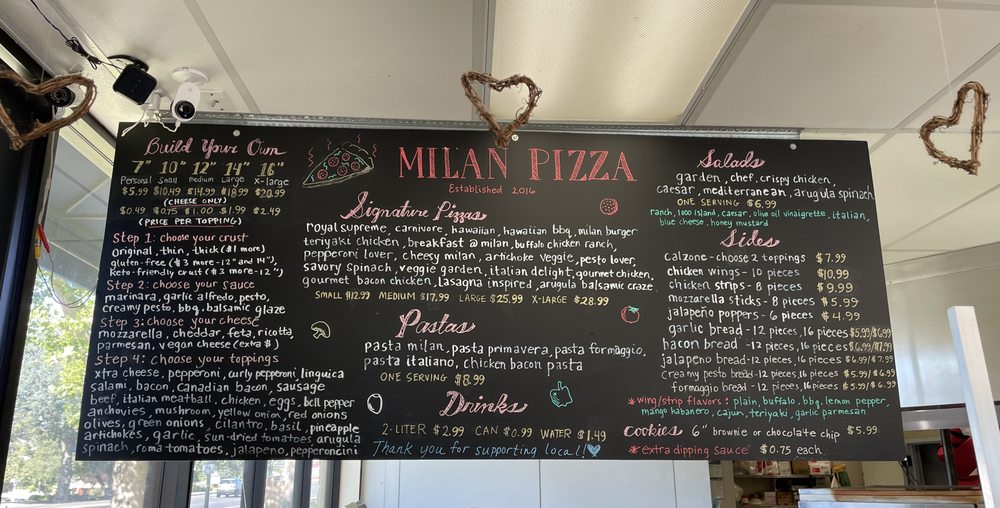 Build Your Own
7" 10" 12" 14" 16"
Personal Small medium Large X-large
$5.99 $10.49 $14.99 $18.99 $20.99
(CHEESE ONLY)
$0.49 $0.75 $1.00 $1.99 $2.49
(PRICE PER TOPPING)
Step 1: choose your crust
original, thin, thick ($1 more)
gluten-free ($3 more-12" and 14"),
Keto-friendly crust ($3 more-12")
Step 2: choose your sauce
marinara, garlic alfredo, pesto,
creamy pesto, bbq, balsamic glaze
Step 3: choose your cheese
mozzarella, cheddar, feta, ricotta
parmesan, vegan cheese (extra $)
Step 4: choose your toppings
xtra cheese, pepperoni, curly pepperoni linguica
salami, bacon, canadian bacon, sausage
beef, italian meatball, chicken, eggs, bell pepper
anchovies, mushroom, yellow onion, red onions
olives, green onions, cilantro, basil, pineapple
artichokes, garlic, sun-dried tomatoes, arugula
spinach, roma tomatoes, jalapeño, pepperoncini
MILAN PIZZA
Established 2016
Signature Pizzas
royal supreme, carnivore, hawaiian, hawaiian bbq, milan burger
teriyaki chicken, breakfast @ milan, buffalo chicken ranch,
pepperoni lover, cheesy milan, artichoke veggie, pesto lover,
savory spinach, veggie garden, italian delight, gourmet chicken,
gourmet bacon chicken, lasagna inspired, arugula balsamic craze
SMALL $12.99 MEDIUM $17.99 LARGE $25.99 X-LARGE $28.99
Pastas
pasta milan, pasta primavera, pasta formaggio,
pasta italiano, chicken bacon pasta
ONE SERVING $8.99
Drinks
2-LITER $2.99 CAN $0.99 WATER $1.49
Thank you for supporting local!
Salads
garden, chef, crispy chicken,
caesar, mediterranean, arugula spinach
ONE SERVING $6.99
ranch, 1000 island, caesar, olive oil vinaigrette, italian,
blue cheese, honey mustard
Sides
calzone-choose 2 toppings $7.99
chicken wings - 10 pieces $10.99
chicken strips - 8 pieces $9.99
mozzarella sticks - 8 pieces $5.99
jalapeño poppers - 6 pieces $4.99
garlic bread - 12 pieces, 16 pieces $5.99/$6.99
bacon bread - 12 pieces, 16 pieces $6.99/$7.99
jalapeno bread - 12 pieces, 16 pieces $6.99/$7.99
creamy pesto bread - 12 pieces, 16 pieces $5.99/$6.99
formaggio bread - 12 pieces, 16 pieces $5.99/$6.99
*wing/strip flavors: plain, buffalo, bbq, lemon pepper,
mango habanero, cajun, teriyaki, garlic parmesan
Cookies 6" brownie or chocolate chip $5.99
*extra dipping sauce $0.75 each